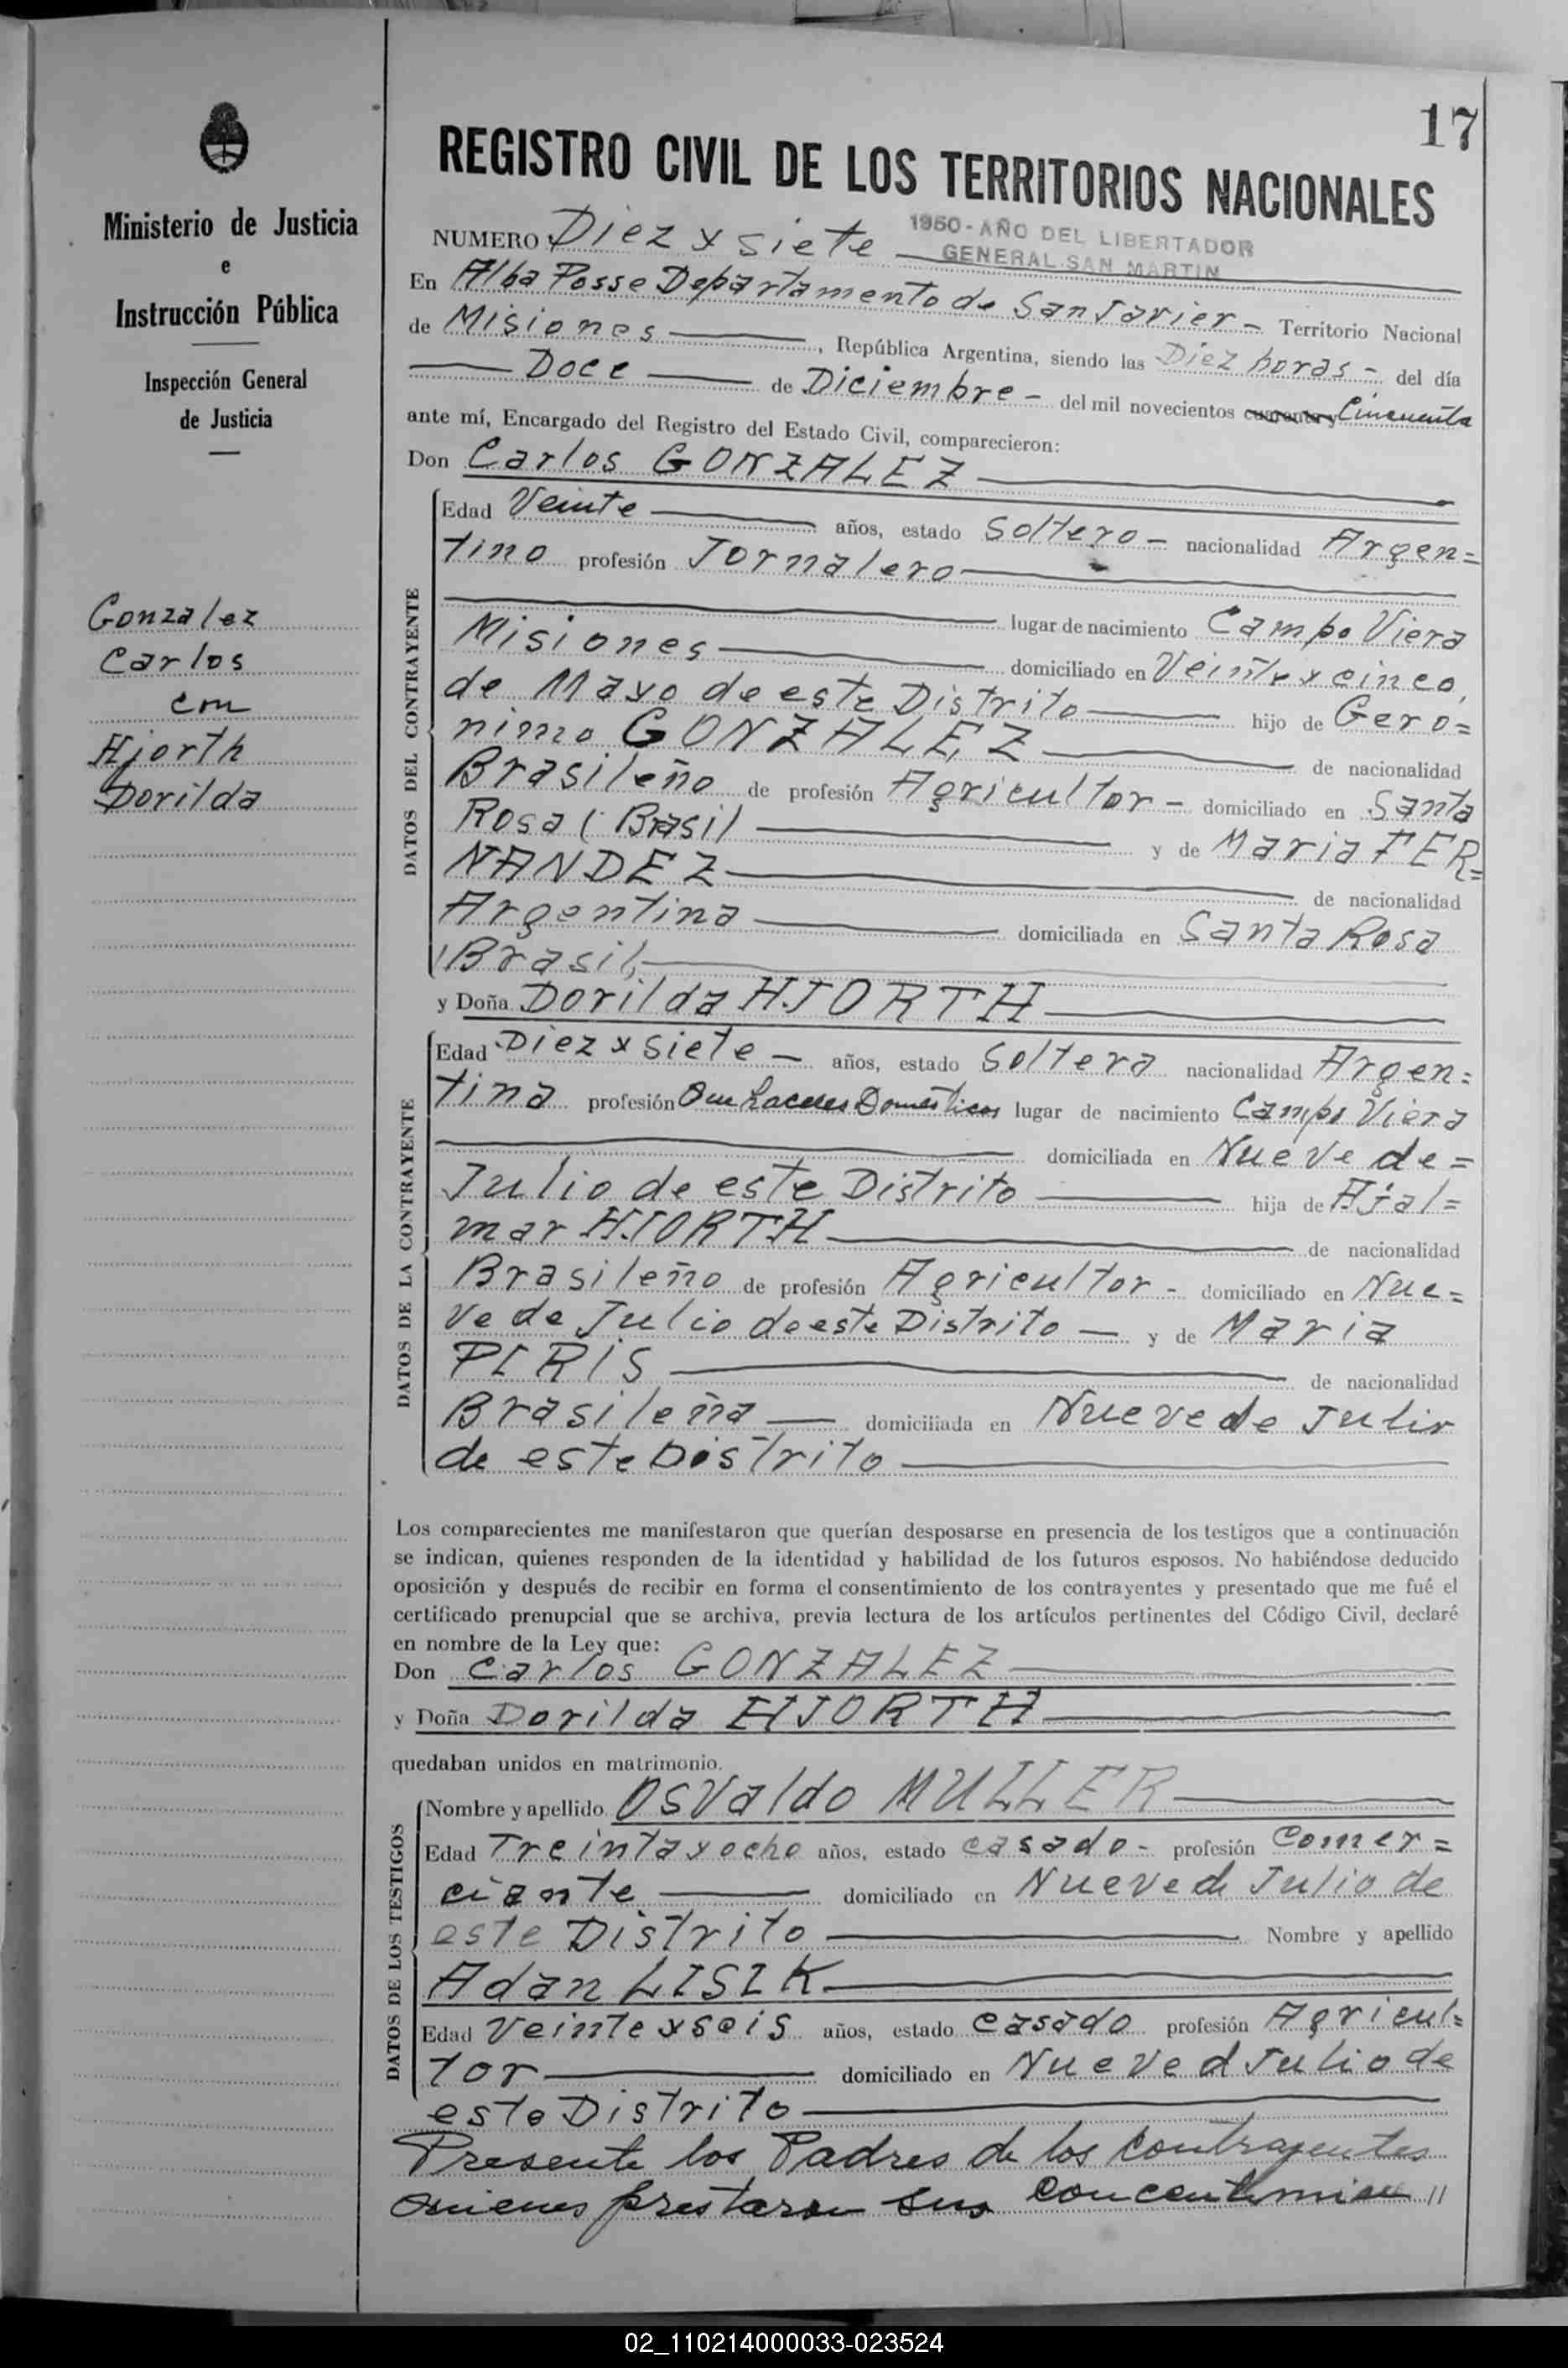 17
Ministerio de Justicia
e
Instrucción Pública
Inspección General
de Justicia
Gonzalez
Carlos
con
Hjorth
Dorilda
REGISTRO CIVIL DE LOS TERRITORIOS NACIONALES
1950 - AÑO DEL LIBERTADOR
GENERAL SAN MARTIN
NUMERO Diez y siete
En Alba Posse Departamento de San Javier - Territorio Nacional
de Misiones, República Argentina, siendo las Diez horas - del día
Doce de Diciembre - del mil novecientos cuarenta y Cincuenta
ante mí, Encargado del Registro del Estado Civil, comparecieron:
Don Carlos GONZALEZ
DATOS DEL CONTRAYENTE
Edad Veinte años, estado Soltero - nacionalidad Argen=
tino profesión Jornalero
lugar de nacimiento Campo Viera
Misiones domiciliado en Veinte y cinco
de Mayo de este Distrito hijo de Gero=
nimo GONZALEZ de nacionalidad
Brasileño de profesión Agricultor - domiciliado en Santa
Rosa (Brasil y de Maria FER=
NANDEZ de nacionalidad
Argentina domiciliada en Santa Rosa
(Brasil)
y Doña Dorilda HJORTH
DATOS DE LA CONTRAYENTE
Edad Diez y siete - años, estado Soltera nacionalidad Argen=
tina profesión Quehaceres Domésticos lugar de nacimiento Campo Viera
domiciliada en Nueve de=
Julio de este Distrito hija de Hjal=
mar HJORTH de nacionalidad
Brasileño de profesión Agricultor - domiciliado en Nue=
ve de Julio de este Distrito - y de Maria
PIRIS de nacionalidad
Brasileña domiciliada en Nueve de Julio
de este Distrito
Los comparecientes me manifestaron que querían desposarse en presencia de los testigos que a continuación
se indican, quienes responden de la identidad y habilidad de los futuros esposos. No habiéndose deducido
oposición y después de recibir en forma el consentimiento de los contrayentes y presentado que me fué el
certificado prenupcial que se archiva, previa lectura de los artículos pertinentes del Código Civil, declaré
en nombre de la Ley que:
Don Carlos GONZALEZ
y Doña Dorilda HJORTH
quedaban unidos en matrimonio.
DATOS DE LOS TESTIGOS
Nombre y apellido Osvaldo MULLER
Edad Treinta y ocho años, estado casado - profesión Comer=
ciante domiciliado en Nueve de Julio de
este Distrito Nombre y apellido
Adan LISIK
Edad Veinte y seis años, estado casado profesión Agricul=
tor domiciliado en Nueve d Julio de
este Distrito
Presente los Padres de los Contrayentes
quienes prestaron sus concentimien //
02_110214000033-023524